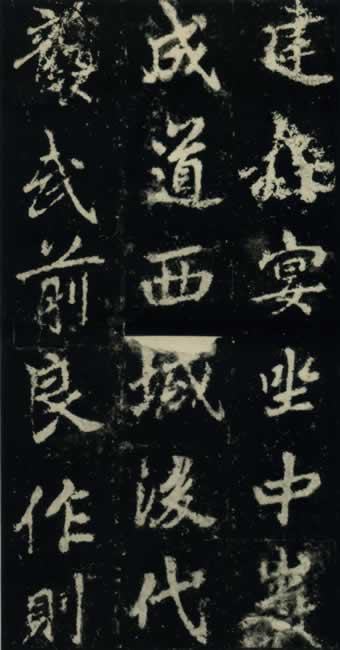 建宴坐中
成道西域後代
武前良作則